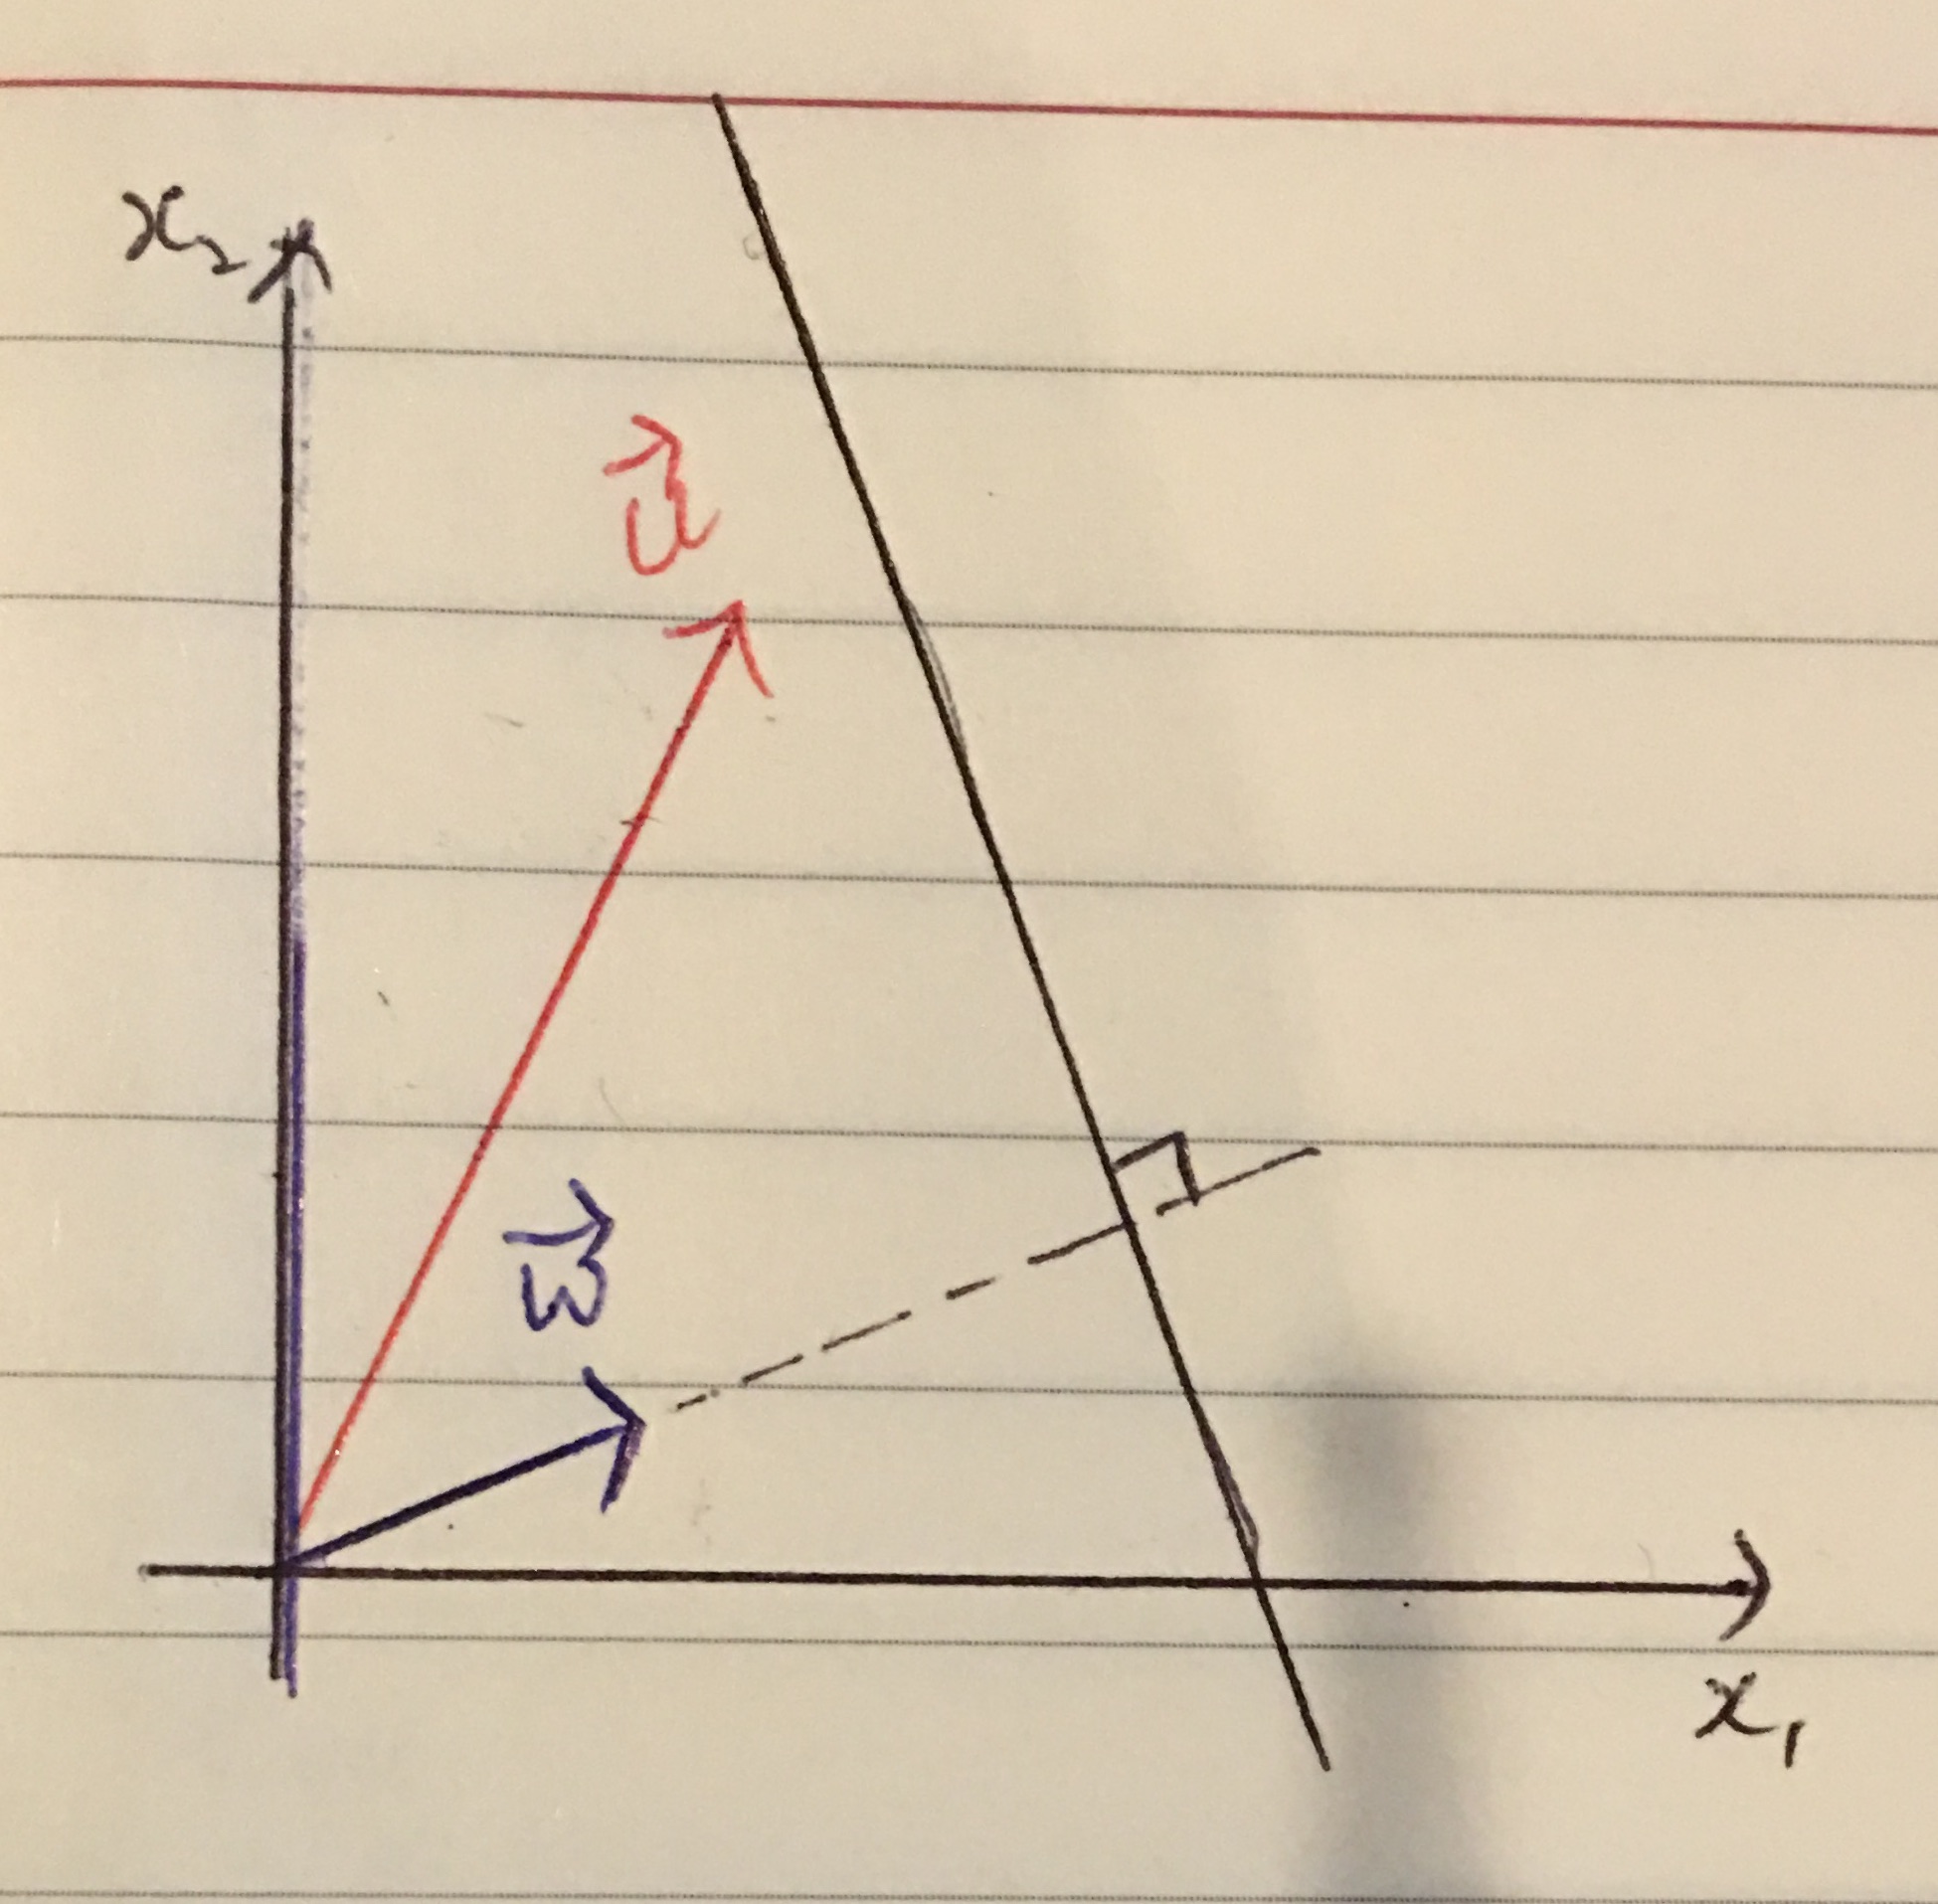 x₂
u⃗
w⃗
x₁